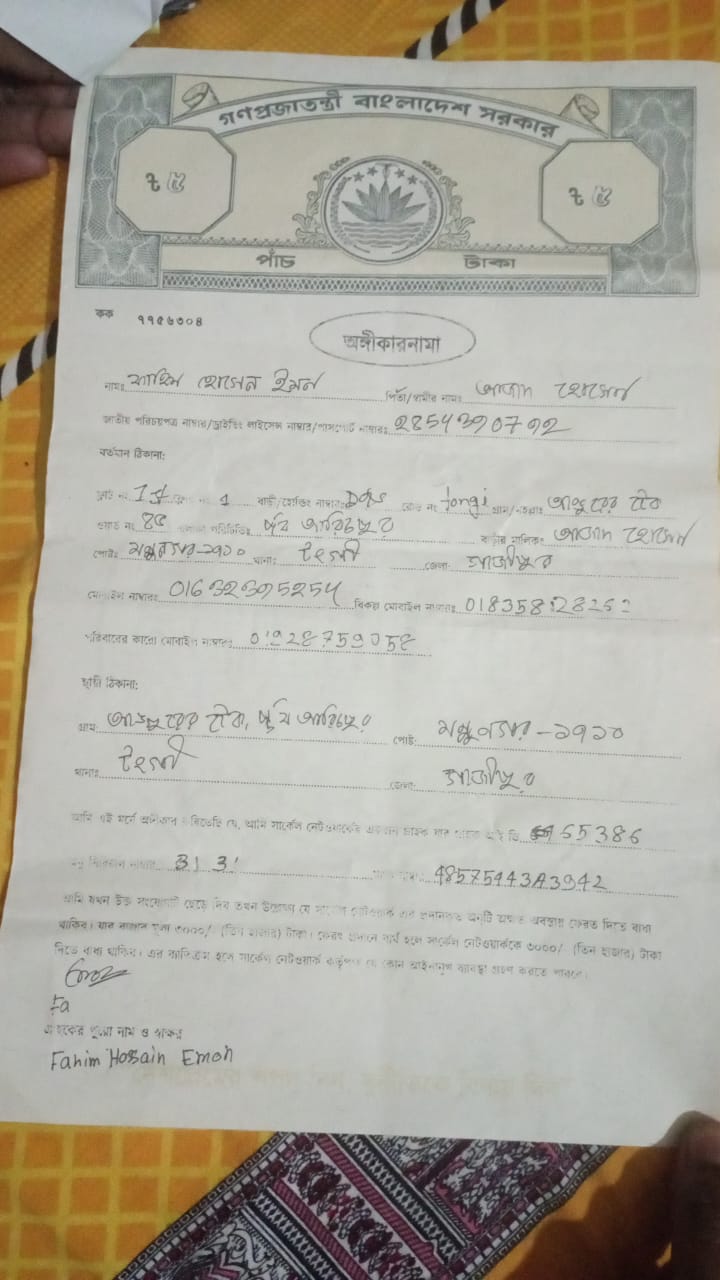 গণপ্রজাতন্ত্রী বাংলাদেশ সরকার
৳ ৫ ৳ ৫
পাঁচ টাকা
কক ৭৭৫৬৩০৪
অঙ্গীকারনামা
নামঃ ফাহিম হোসেন ইমন পিতা/স্বামীর নামঃ আজাদ হোসেন
জাতীয় পরিচয়পত্র নাম্বার/ড্রাইভিং লাইসেন্স নাম্বার/পাসপোর্ট নাম্বারঃ 2854390792
বর্তমান ঠিকানা:
1st 1 বাড়ী/হোল্ডিং নাম্বারঃ রোড নং Tongi গ্রাম/মহল্লাঃ
ওয়ার্ড নং পূর্ব আরিচপুর বাড়ীর মালিকঃ আজাদ হোসেন
পোষ্টঃ মন্নুনগর-১৭১০ থানাঃ টঙ্গী জেলা গাজীপুর
মোবাইল নাম্বারঃ 01632395254 বিকল্প মোবাইল নাম্বারঃ
পরিবারের কারো মোবাইল নাম্বারঃ
স্থায়ী ঠিকানা:
গ্রামঃ পূর্ব আরিচপুর পোষ্ট: মন্নুনগর-১৭১০
থানাঃ টঙ্গী জেলাঃ গাজীপুর
আমি এই মর্মে অঙ্গীকার করিতেছি যে, আমি সার্কেল নেটওয়ার্কের একজন গ্রাহক যার গ্রাহক আই ডি 65386
48575443A3942
আমি যখন উক্ত সংযোগটি ছেড়ে দিব তখন উল্লেখ্য যে সার্কেল নেটওয়ার্ক এর প্রদানকৃত অনুটি অক্ষত অবস্থায় ফেরত দিতে বাধ্য
থাকিব। যার বাজার মূল্য ৩০০০/- (তিন হাজার) টাকা। ফেরৎ প্রদানে ব্যর্থ হলে সার্কেল নেটওয়ার্ককে ৩০০০/- (তিন হাজার) টাকা
দিতে বাধ্য থাকিব। এর ব্যতিক্রম হলে সার্কেল নেটওয়ার্ক কর্তৃপক্ষ যে কোন আইনানুগ ব্যবস্থা গ্রহণ করতে পারবে।
Fa
গ্রাহকের পুরো নাম ও স্বাক্ষর
Fahim Hossain Emon